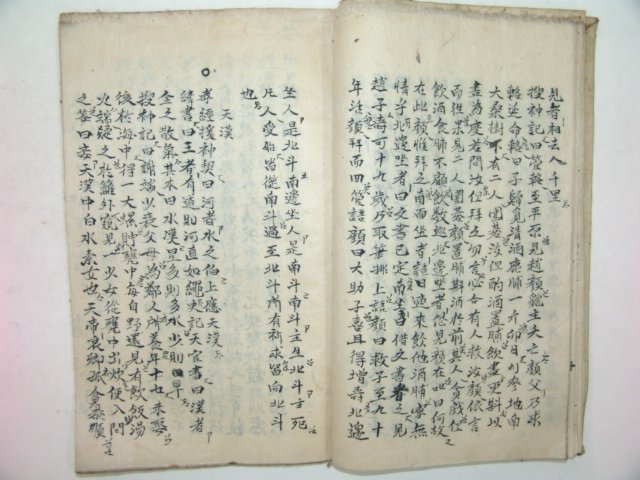 見者相去人千里
搜神記曰管輅至平原見趙顔龍主夫亡顔父乃求
輅延命輅曰子歸覓清酒鹿脯一斤卯日刈麥地南
大桑樹下有二人圍碁汝但酌酒置脯飮盡更斟以
盡為度若問汝但拜之勿言必合有人救汝顔依言
而徃果見二人圍碁顔置脯斟酒於前其人貪戱但
飮酒食脯不顧飮數巡北邊坐者忽見顔在叱曰何故
在此顔惟拜之南面坐者語曰適來飮他酒脯寧無
情乎北邊坐者曰文書已定南坐曰借文書者之見
趙子壽可十九歲乃取筆挑上語顔曰救子至九十
年活顔拜而回管語顔曰大助子喜且得增壽北邊
坐人是北斗南邊坐人是南斗南斗主生北斗主死
凡人受胎皆從南斗過至北斗所有祈求皆向北斗
也
天漢
孝經援神契曰河者水之伯上應天漢
緯書曰王者有道則河直如繩史記天官書曰漢者
金之散氣其本曰水漢星多則多水少則旱
搜神記曰謝端少喪父母為鄰人所養年十七未娶
後於海中得一大螺貯甕中每自野還見有飮飯湯
火端疑之於籬外窺見一少女從甕中出炊便入問
之答曰妾天漢中白水素女也天帝哀卿孤